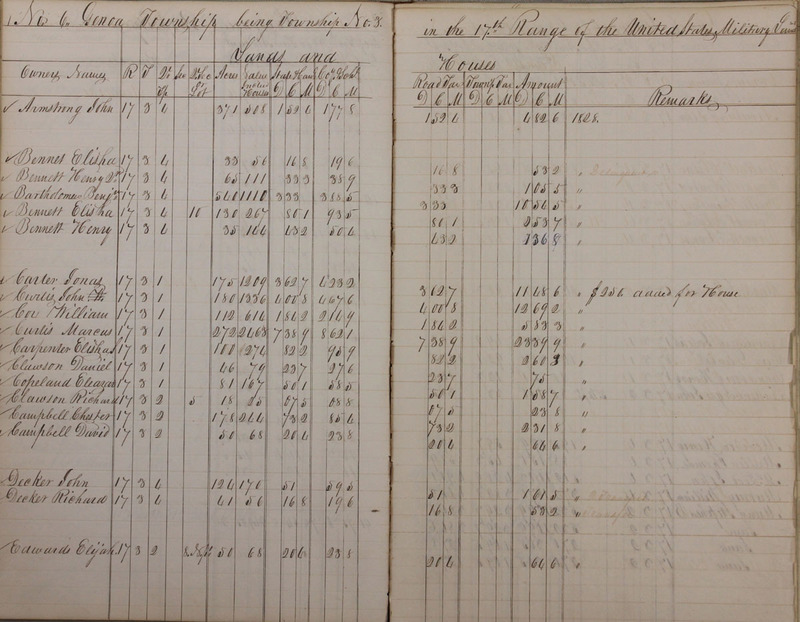 No 6. Genoa Township being Township No. 3. in the 17th Range of the United States Military Land
Lands and Houses
Owners Names R T Qr Tp Sec Acres Value State & Canal Road Tax Townsp Tax Amount Remarks
D C M D C M D C M D C M D C M
Armstrong John 17 3 4 371 508 152 4 177 8 152 4 482 6 1828.
Bennet Elisha 17 3 4 33 56 16 8 19 6 16 8 53 2
Bennett Henry 17 3 4 65 111 33 3 38 9 33 3 105 5 "
Bartholomew 17 3 4 540 1110 333 388 5 333 1054 5 "
Bennett Elisha 17 3 4 10 130 267 80 1 93 5 80 1 253 7 "
Bennett Henry 17 3 4 35 144 43 2 50 4 43 2 136 8 "
Carter Jonas 17 3 1 175 1209 362 7 423 2 362 7 1148 6 " $256 added for House
John 17 3 1 180 1336 400 8 467 6 400 8 1269 2 "
Coe William 17 3 1 112 614 184 2 214 9 184 2 583 3 "
Curtis Marcus 17 3 1 272 2463 738 9 862 1 738 9 2339 9 "
Carpenter Elishas 17 3 1 100 274 82 2 95 9 82 2 260 3 "
Clawson Daniel 17 3 1 46 79 23 7 27 6 23 7 75 "
Copeland Eleazar 17 3 1 81 167 50 1 58 5 50 1 158 7 "
Clawson Richard 17 3 2 5 18 25 07 5 08 8 07 5 23 8 "
Campbell Chester 17 3 2 178 244 73 2 85 4 73 2 231 8 "
Campbell David 17 3 2 50 68 20 4 23 8 20 4 64 6 "
Decker John 17 3 4 124 170 51 59 5 51 161 5
Decker Richard 17 3 4 41 56 16 8 19 6 16 8 53 2 "
Edwards Elijah 17 3 2 8 50 68 20 4 23 8 20 4 64 6 "